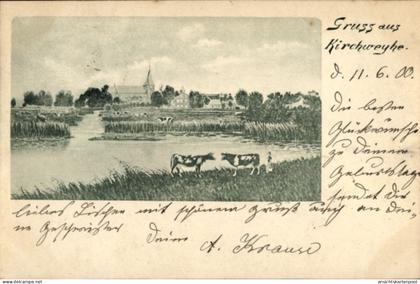 Gruss aus
Kirchweyhe.
d. 11. 6. 00.
die besten
Glückwünsche
zu deinem
Geburtstage
sendet dir
liebes Lischen mit schönem Gruss auch an Dei-
ne Geschwister
Deine A. Krause
www.ansichtskartenpool.de